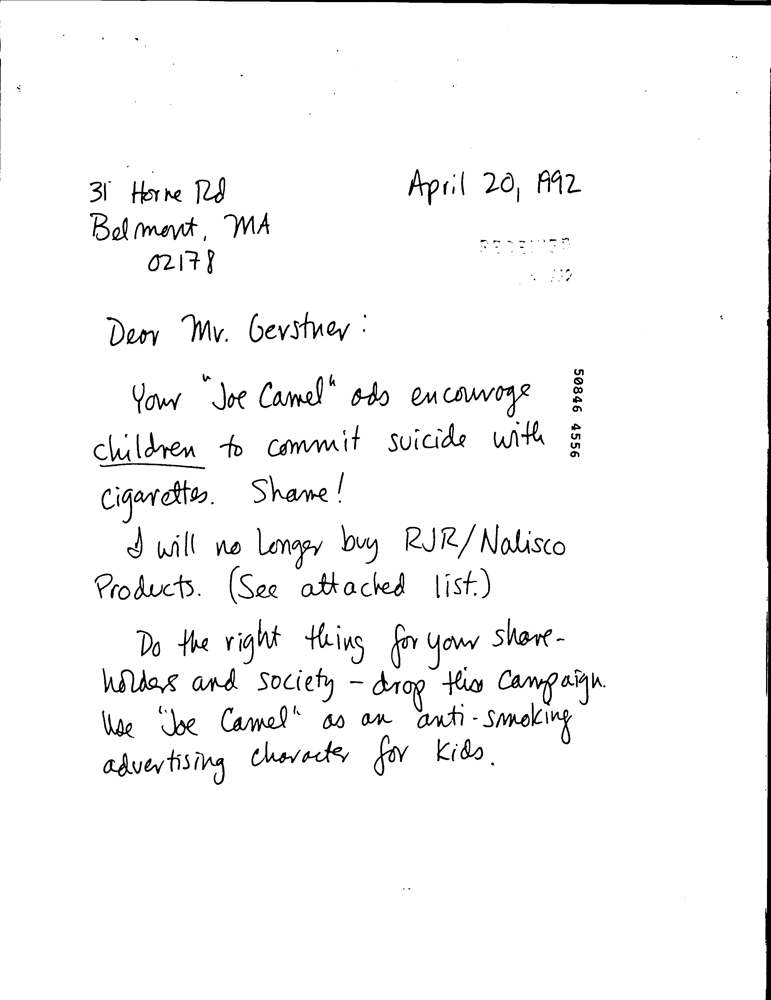 31 Horne Rd
April 20, 1992
Belmont, MA
02178
RECEIVED
Dear Mr. Gerstner:
Your "Joe Camel" ads encourage
children to commit suicide with
cigarettes. Shame!
I will no longer buy RJR/Nalisco
Products. (See attached list.)
Do the right thing for your share-
holders and society - drop this campaign.
Use "Joe Camel" as an anti-smoking
advertising character for kids.
50846 4556